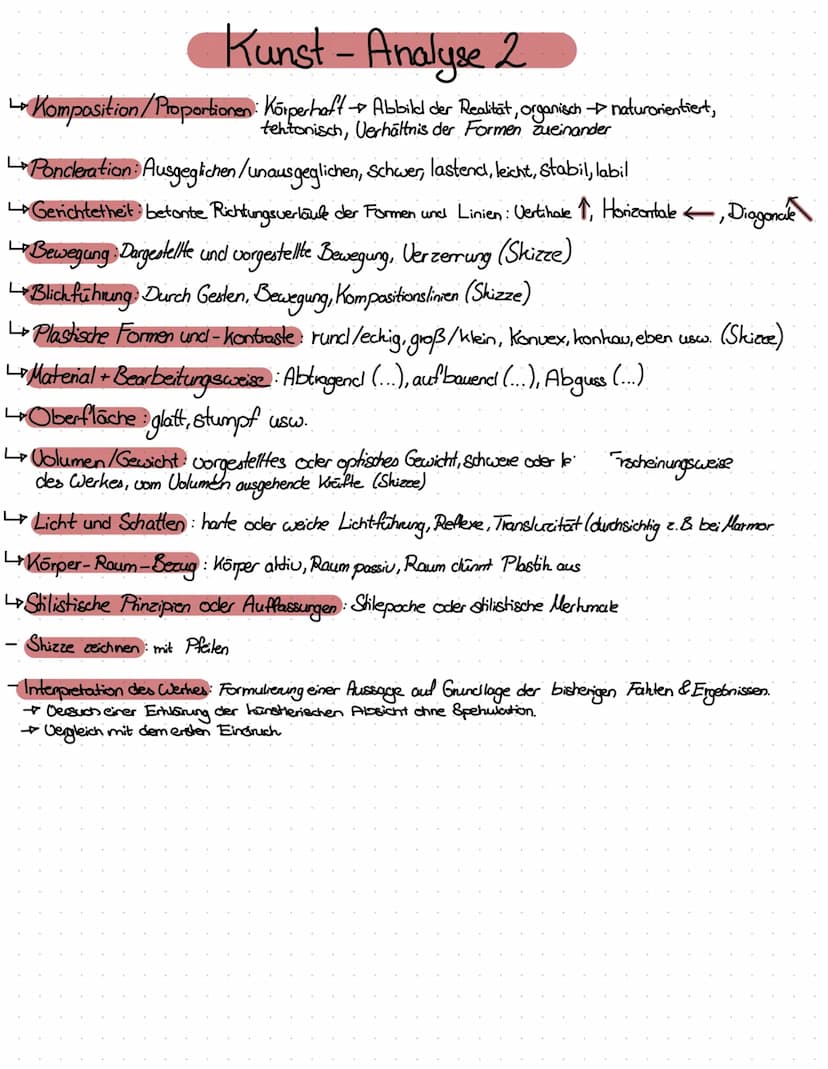 Kunst - Analyse 2
↳ Komposition/Proportionen: Körperhaft → Abbild der Realität, organisch → naturorientiert,
tektonisch, Verhältnis der Formen zueinander
↳ Ponderation: Ausgeglichen/unausgeglichen, schwer, lastend, leicht, stabil, labil
↳ Gerichtetheit: betonte Richtungsverläufe der Formen und Linien: Vertikale ↑, Horizontale ←, Diagonale ↖
↳ Bewegung: Dargestellte und vorgestellte Bewegung, Verzerrung (Skizze)
↳ Blickführung: Durch Gesten, Bewegung, Kompositionslinien (Skizze)
↳ Plastische Formen und -kontraste: rund/eckig, groß/klein, Konvex, konkav, eben usw. (Skizze)
↳ Material + Bearbeitungsweise: Abtragend (...), aufbauend (...), Abguss (...)
↳ Oberfläche: glatt, stumpf usw.
↳ Volumen/Gewicht: vorgestelltes oder optisches Gewicht, schwere oder rscheinungsweise
des Werkes, vom Volumen ausgehende Kräfte (Skizze)
↳ Licht und Schatten: harte oder weiche Lichtführung, Reflexe, Transluzität (durchsichtig z.B bei Marmor
↳ Körper-Raum-Bezug: Körper aktiv, Raum passiv, Raum dünnt Plastik aus
↳ Stilistische Prinzipien oder Auffassungen: Stilepoche oder stilistische Merkmale
- Skizze zeichnen: mit Pfeilen
- Interpretation des Werkes: Formulierung einer Aussage auf Grundlage der bisherigen Fakten & Ergebnissen.
→ Versuch einer Erklärung der künstlerischen Absicht ohne Spekulation.
→ Vergleich mit dem ersten Eindruck